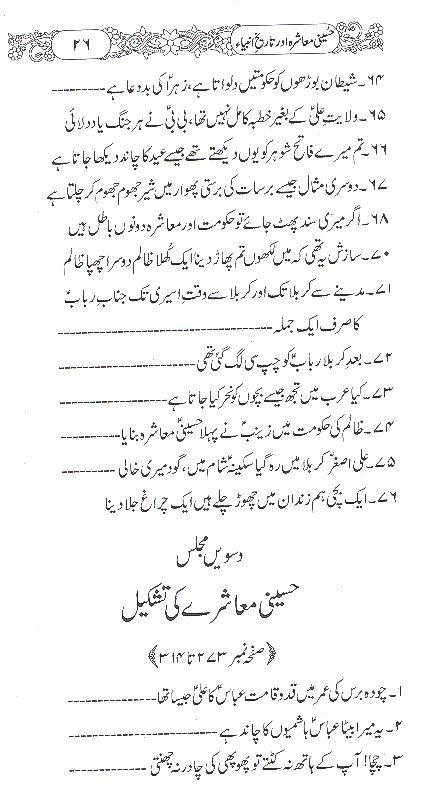 ۲۶ حسینی معاشرہ اور تاریخ انبیاء
۶۴۔ شیطان بوڑھوں کو حکومتیں دلواتا ہے، زہراؑ کی بددعا ہے ----------
۶۵۔ ولایتِ علیؑ کے بغیر خطبہ کامل نہیں تھا، بی بیؑ نے ہر جنگ یاد دلائی
۶۶۔ تم میرے فاتح شوہر کو یوں دیکھتے تھے جیسے عید کا چاند دیکھا جاتا ہے
۶۷۔ دوسری مثال جیسے برسات کی برستی پھوار میں شیر جھوم جھوم کر چلتا ہے
۶۸۔ اگر میری سند پھٹ جائے تو حکومت اور معاشرہ دونوں باطل ہیں
۷۰۔ سازش یہ تھی کہ میں لکھوں تم پھاڑ دینا ایک کُھلا ظالم دوسرا چھپا ظالم
۷۱۔ مدینے سے کربلا تک اور کربلا سے وقتِ اسیری تک جنابِ ربابؑ
کا صرف ایک جملہ ------------------------------
۷۲۔ بعدِ کربلا ربابؑ کو چپ سی لگ گئی تھی --------------------
۷۳۔ کیا عرب میں تجھ جیسے بچوں کو نحر کیا جاتا ہے ----------------
۷۴۔ ظالم کی حکومت میں زینبؑ نے پہلا حسینیؑ معاشرہ بنایا ----------
۷۵۔ علی اصغرؑ کربلا میں رہ گیا سکینہؑ شام میں، گود میری خالی --------
۷۶۔ ایک بچی ہم زندان میں چھوڑ چلے ہیں ایک چراغ جلا دینا
دسویں مجلس
حسینی معاشرے کی تشکیل
﴿صفحہ نمبر ۲۷۳ تا ۳۱۴﴾
۱۔ چودہ برس کی عمر میں قد و قامت عباسؑ کا علیؑ جیسا تھا -----------
۲۔ یہ میرا بیٹا عباسؑ ہاشمیوں کا چاند ہے --------------------
۳۔ چچا! آپ کے ہاتھ نہ کٹتے تو پھوپھی کی چادر نہ چھنتی ------------